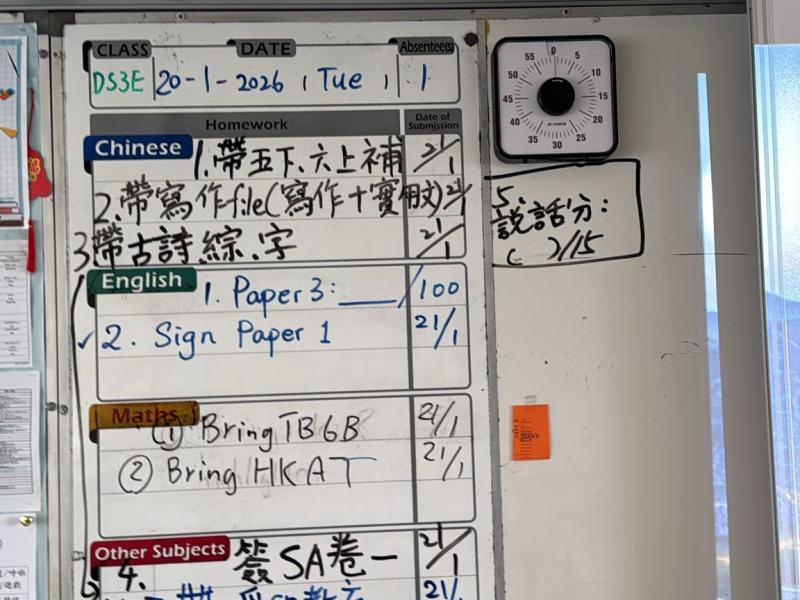 CLASS DATE Absentee(s)
DS3E 20-1-2026 ( Tue ) 1
Homework Date of Submission
Chinese 1.帶五下、六上補 21/1
2.帶寫作file(寫作+實用文) 21/1
3帶古詩綜.字 21/1
English
1. Paper 3: ____/100
✓2. Sign Paper 1 21/1
Maths
① Bring TB6B 21/1
② Bring HKAT 21/1
Other Subjects
4. 簽SA卷一 21/1
21/
5.
說話分:
( )/15
0
5
10
15
20
25
30
35
40
45
50
55